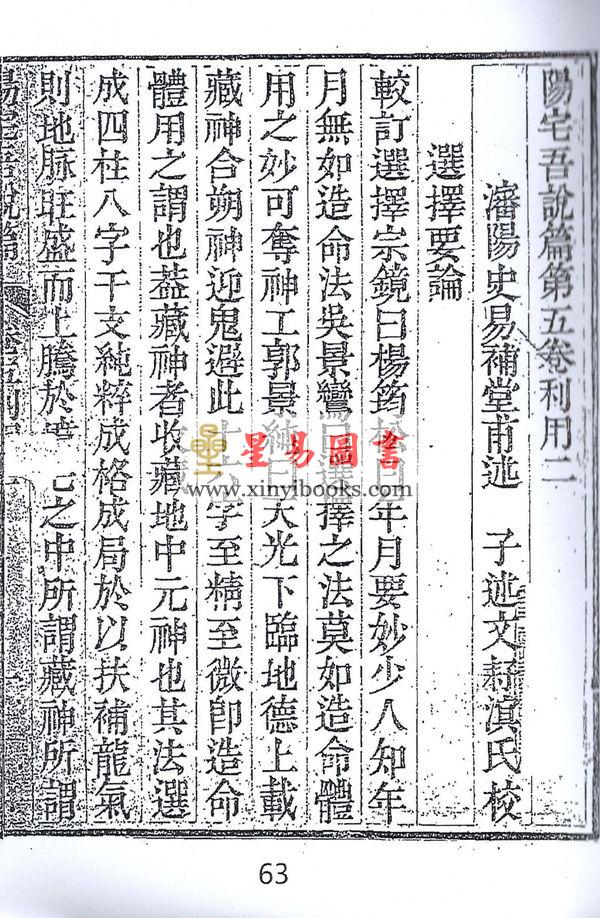 陽宅吾說篇第五卷利用二
瀋陽史易補堂甫述 子述文 滇氏校
選擇要論
較訂選擇宗鏡曰楊筠松 年月要妙少人知年
月無如造命法吳景鸞曰選擇之法莫如造命體
用之妙可奪神工郭景純曰天光下臨地德上載
藏神合朔神迎鬼避此 字至精至微卽造命
體用之謂也蓋藏神者收藏地中元神也其法選
成四柱八字干支純粹成格成局於以扶補龍氣
則地脉旺盛而上騰於 之中所謂藏神所謂
陽宅吾說篇
星易圖書
www.xinyibooks.com
63